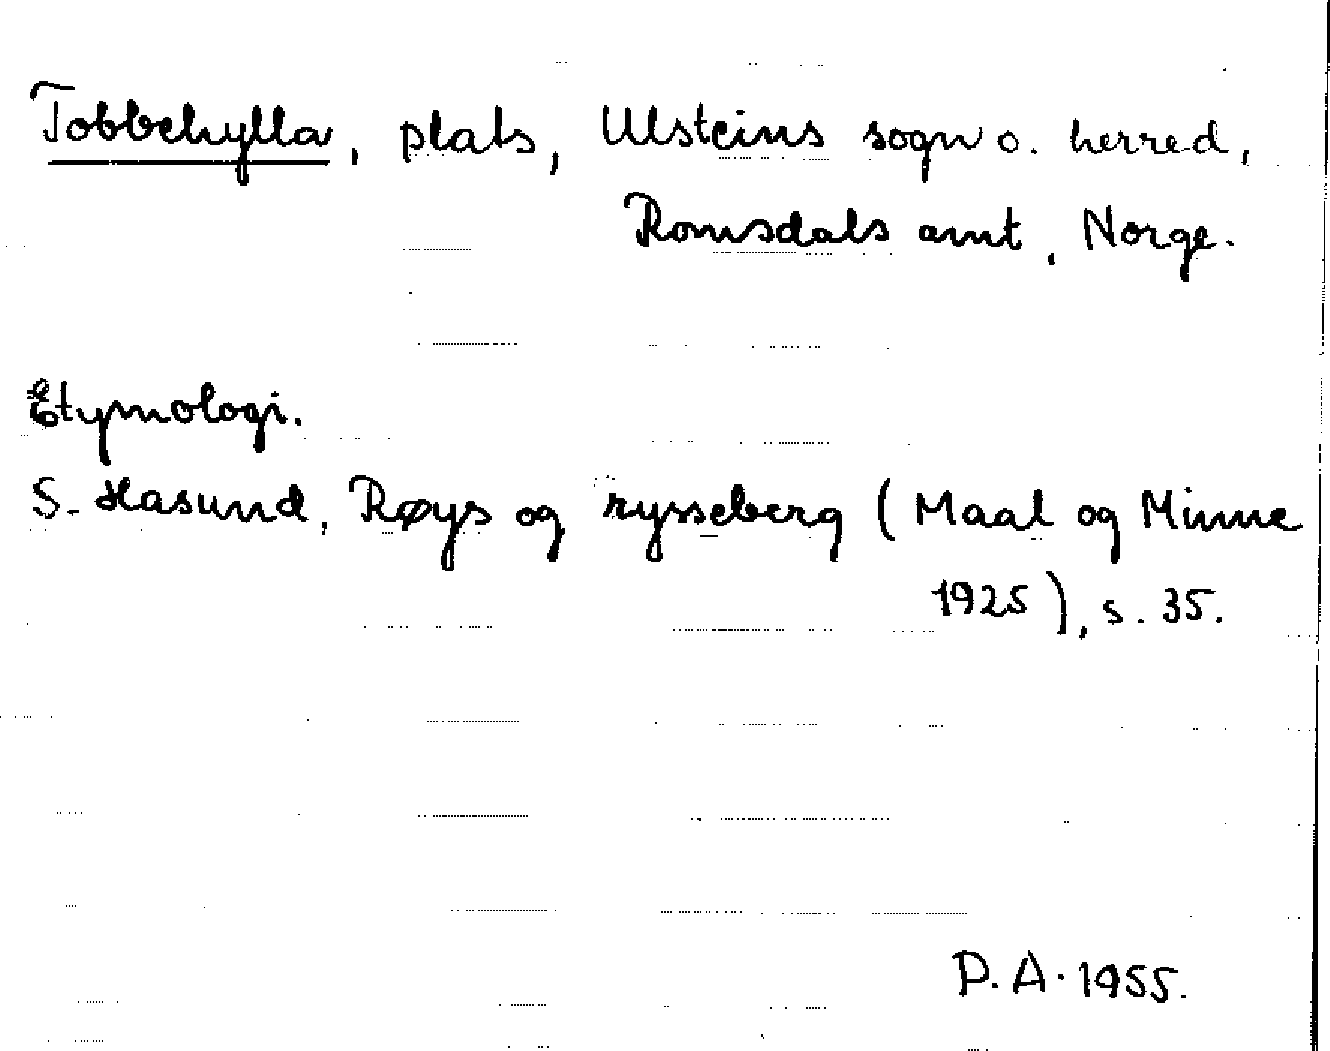 Tobbehylla, plats, Ulsteins sogn o. herred,
Romsdals amt, Norge.
Etymologi.
S. Hasund, Røys og rysseberg (Maal og Minne
1925), s. 35.
P.A. 1955.